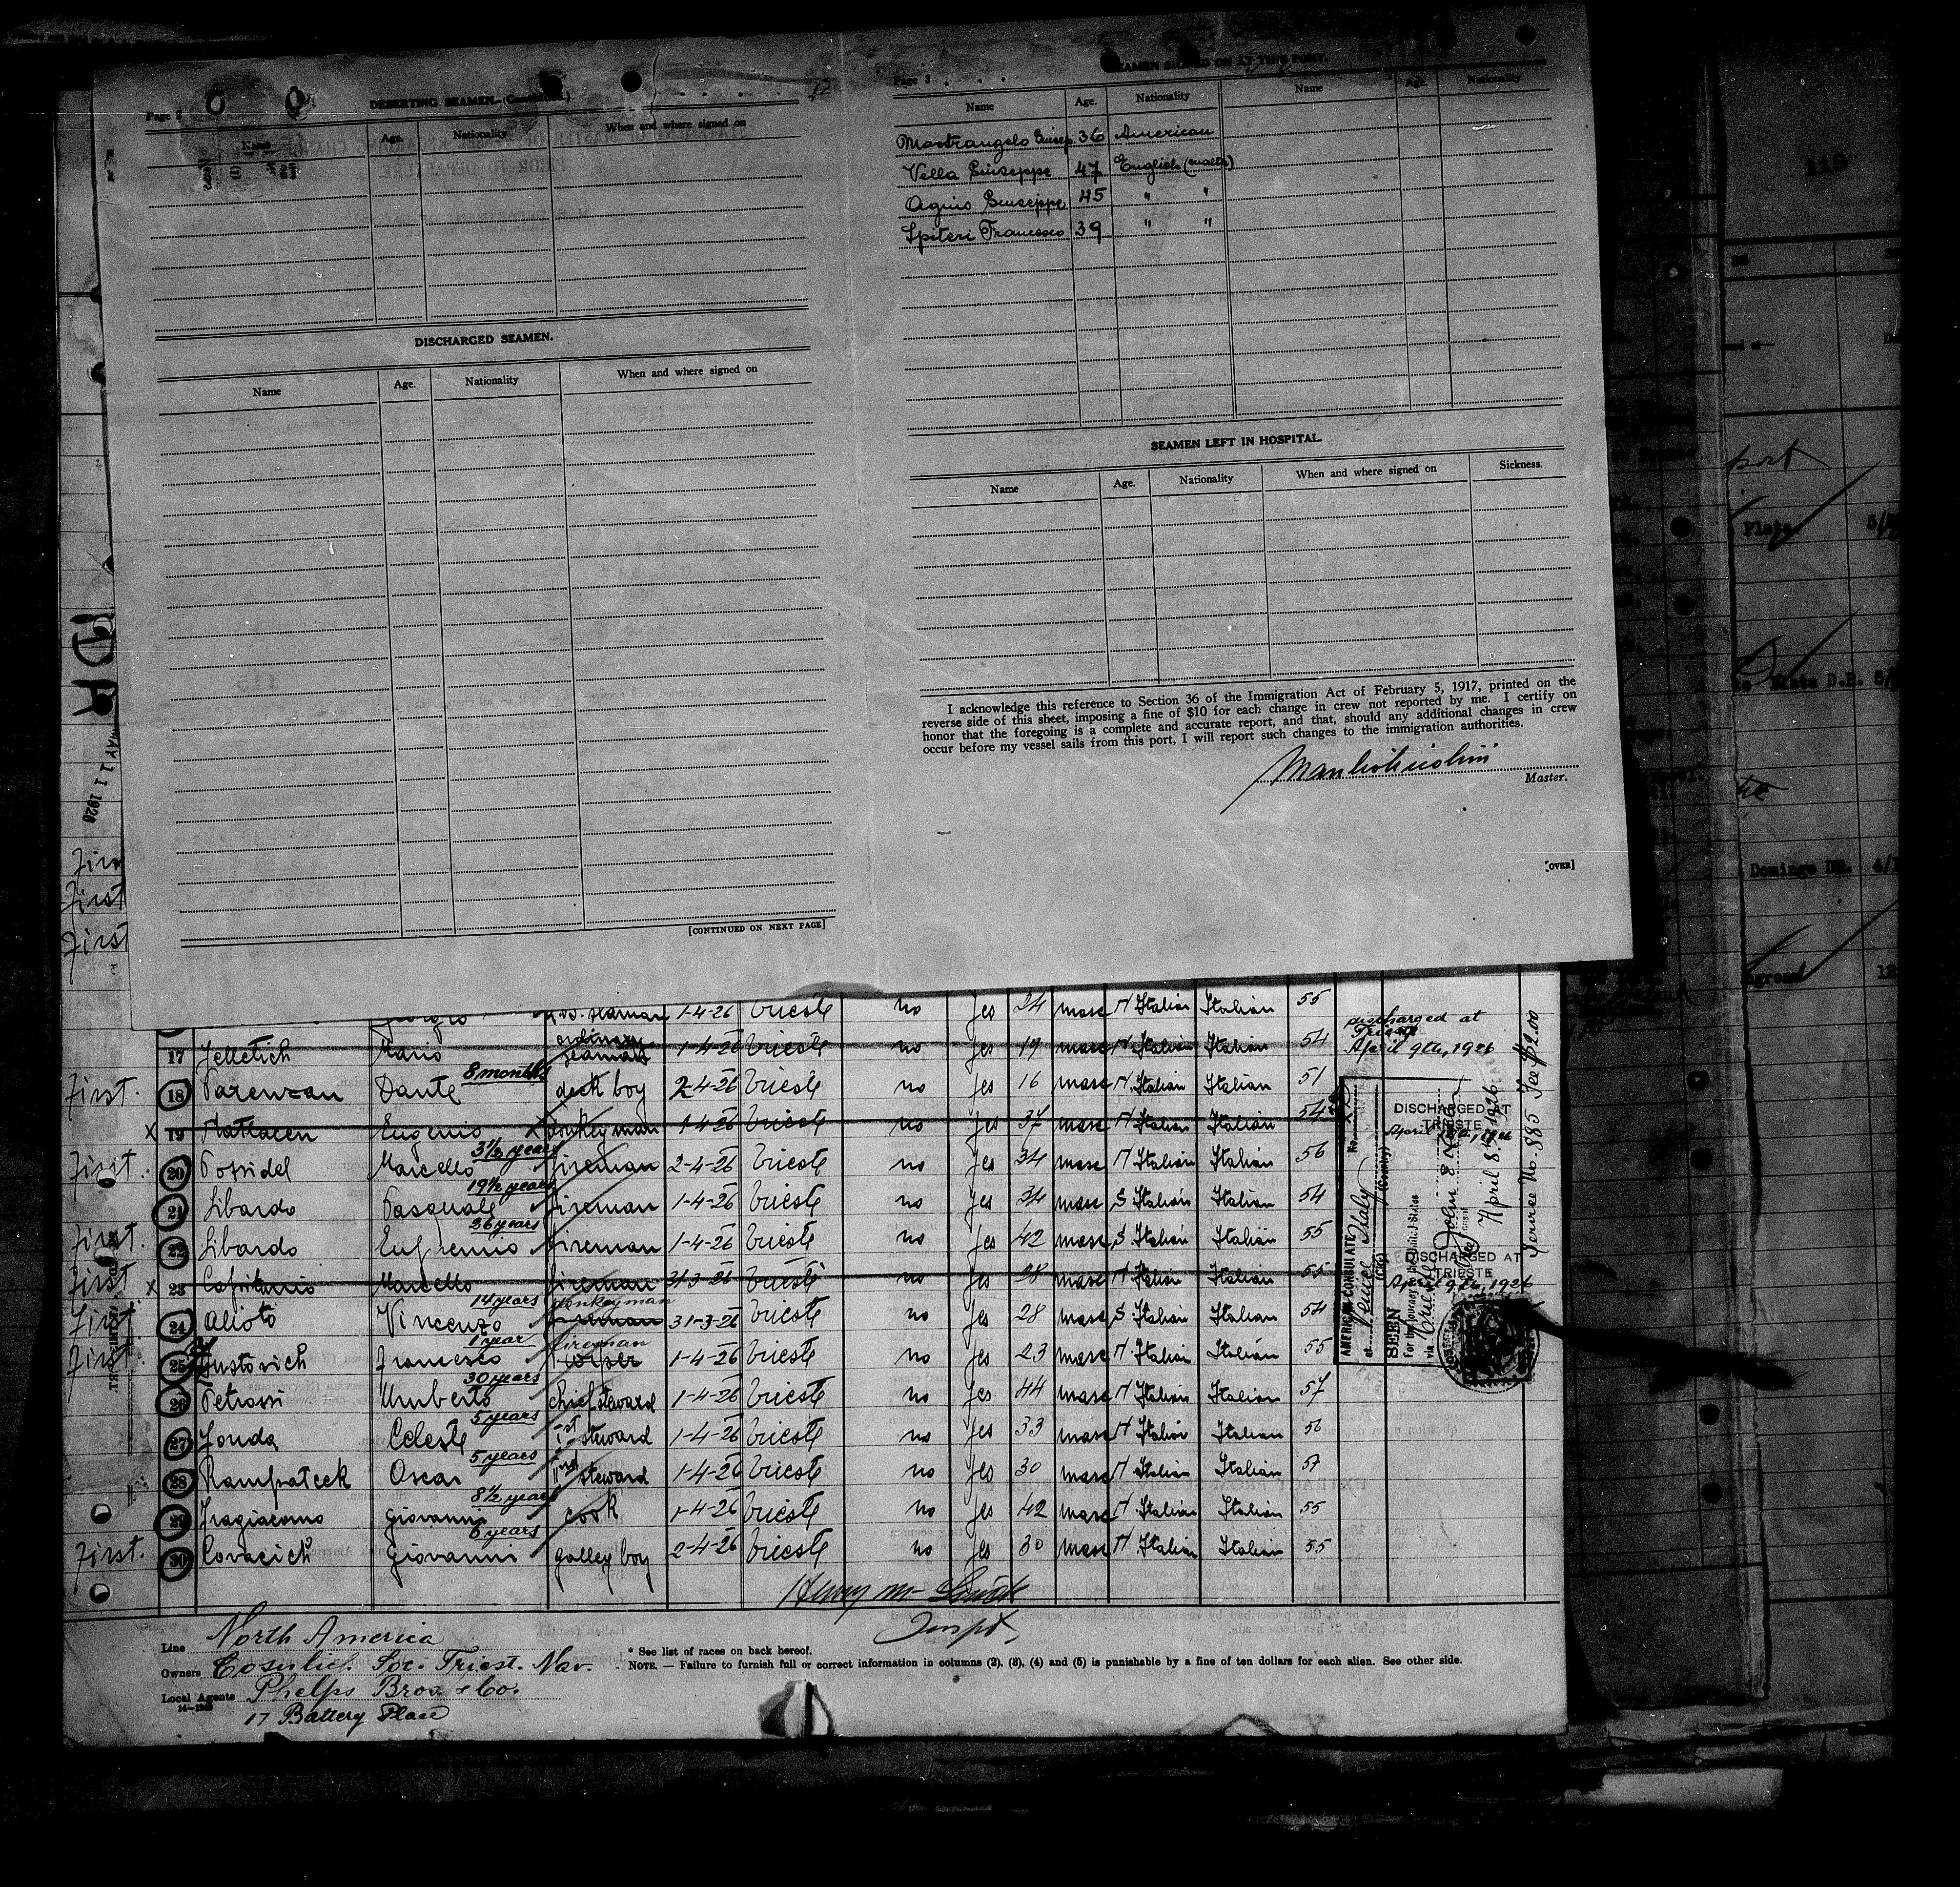 Page 2
DESERTING SEAMEN.—(Continued.)
Name Age. Nationality When and where signed on
DISCHARGED SEAMEN.
Name Age. Nationality When and where signed on
[CONTINUED ON NEXT PAGE]
Page 3
SEAMEN SIGNED ON AT THIS PORT.
Name Age. Nationality Name Age. Nationality
Mastrangelo Giusep. 36 American
Vella Giuseppe 47 English (Malta)
Agius Giuseppe 45 " "
Spiteri Francesco 39 " "
SEAMEN LEFT IN HOSPITAL.
Name Age. Nationality When and where signed on Sickness.
I acknowledge this reference to Section 36 of the Immigration Act of February 5, 1917, printed on the
reverse side of this sheet, imposing a fine of $10 for each change in crew not reported by me. I certify on
honor that the foregoing is a complete and accurate report, and that, should any additional changes in crew
occur before my vessel sails from this port, I will report such changes to the immigration authorities.
Master.
[OVER]
119
port
Plata
Plata D.R. 5/
Domingo DR. 4/
MAY 11 1926
First
First
First
seaman 1-4-26 Trieste no yes 24 masc N Italian Italian 55
17 Jelletich Mario ordinary seaman 1-4-26 Trieste no yes 19 masc N Italian Italian 54 discharged at Trieste April 9th, 1926
First. 18 Parenzan Dante 8 months deck boy 2-4-26 Trieste no yes 16 masc N. Italian Italian 51
x 19 Mattacen Eugenio donkeyman 1-4-26 Trieste no yes 37 masc N Italian Italian 54 DISCHARGED AT TRIESTE
First. 20 Possidel Marcello 3 1/2 years fireman 2-4-26 Trieste no yes 34 masc N Italian Italian 56
21 Libardo Pasquale 19 1/2 years fireman 1-4-26 Trieste no yes 34 masc S Italian Italian 54
First. 22 Libardo Eufremio 26 years fireman 1-4-26 Trieste no yes 42 masc S Italian Italian 55
First x 23 Capitanio Marcello fireman 31-3-26 Trieste no yes 28 masc N Italian Italian 55 DISCHARGED AT TRIESTE April 9th, 1926
First 24 Alioto Vincenzo 14 years donkeyman fireman 31-3-26 Trieste no yes 28 masc S Italian Italian 54
First 25 Justovich Francesco 1 year fireman wiper 1-4-26 Trieste no yes 23 masc N. Italian Italian 55
26 Petrossi Umberto 30 years chief steward 1-4-26 Trieste no yes 44 masc N Italian Italian 57
27 Jonda Celeste 5 years 1st steward 1-4-26 Trieste no yes 33 masc N Italian Italian 56
28 Rampatcek Oscar 5 years 2nd steward 1-4-26 Trieste no yes 30 masc N Italian Italian 57
29 Fragiacomo Giovanni 8 1/2 years cook 1-4-26 Trieste no yes 42 masc N. Italian Italian 55
First. 30 Covacich Giovanni 6 years galley boy 2-4-26 Trieste no yes 30 masc N Italian Italian 55
AMERICAN CONSULATE
at Venice Italy
(City) (Country)
SEEN
For the journey to the United States
via Trieste
April 8th 1926
Service No. 885 Fee $2.00
Inspt.
Line North America
Owners Cosulich Soc. Triest. Nav.
Local Agents Phelps Bros & Co.
17 Battery Place
* See list of races on back hereof.
NOTE. — Failure to furnish full or correct information in columns (2), (3), (4) and (5) is punishable by a fine of ten dollars for each alien. See other side.